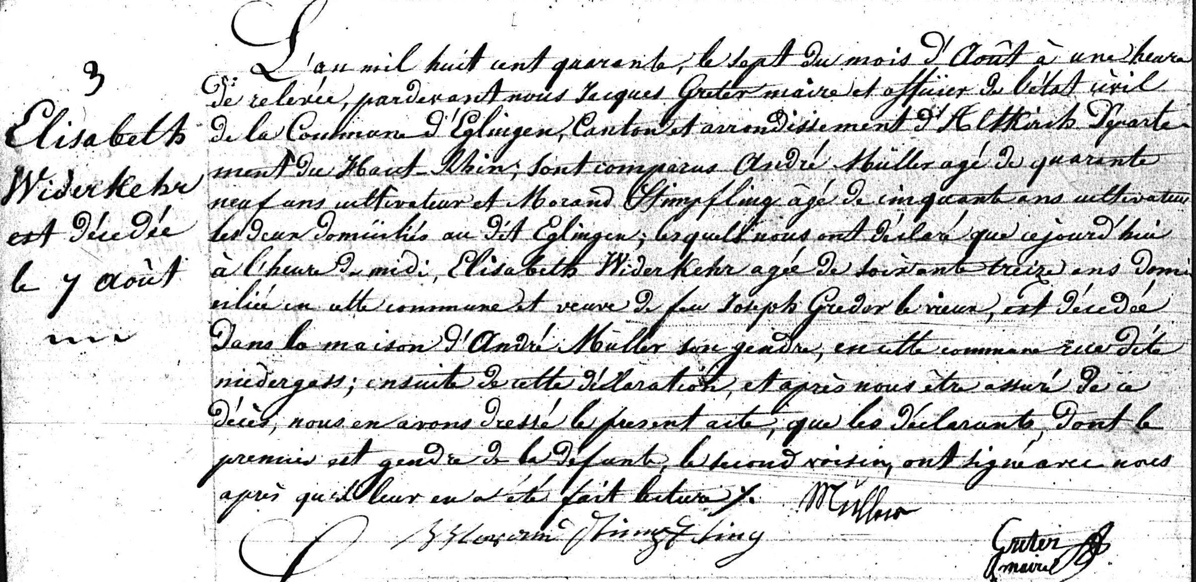 3
Elisabeth
Widerkehr
est décédée
le 7 août
L'an mil huit cent quarante, le sept du mois d'Août à une heure
de relevée, pardevant nous Jacques Greter maire et officier de l'état civil
de la Commune d'Eglingen, Canton et arrondissement d'Altkirch Départe
ment du Haut Rhin, sont comparus André Müller agé de quarante
neuf ans cultivateur et Morand Stimpfling âgé de cinquante ans cultivateur
les deux domiciliés au dit Eglingen; lesquels nous ont déclaré que cejourd'hui
à l'heure de midi, Elisabeth Widerkehr agée de soixante treize ans domi
ciliée en cette commune et veuve de feu Joseph Gredor le vieux, est décédée
dans la maison d'André Müller son gendre, en cette commune rue dite
niedergass; ensuite de cette déclaration, et après nous être assuré de ce
décès, nous en avons dressé le présent acte, que les déclarants, dont le
premier est gendre de la défunte, le second voisin, ont signé avec nous
après qu'il leur en a été fait lecture Müller
Stimpfling
Greter
maire